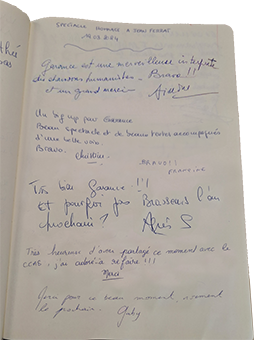 SPECTACLE HOMMAGE A JEAN FERRAT
Garance est une merveilleuse interprète
des chansons humanistes - Bravo !!
et un grand merci
Un big up pour Garance
Beau spectacle et de beaux textes accompagnés
d'une belle voix.
Bravo.
Christine
BRAVO !!
FRANÇOISE
Très bien Garance !!!
Et pourquoi pas Brassens l'an
prochain ?
Agnès S
Très heureux d'avoir partagé ce moment avec le
CCAS, j'ai adoré à refaire !!!
Merci
pour ce beau moment, vivement
le prochain. Gaby